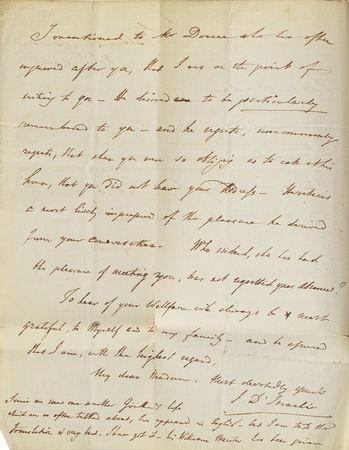 I mentioned to Mr Douce who has often
enquired after you, that I was on the point of
writing to you – He desired me to be particularly
remembered to you – and he regrets, uncommonly
regrets, that when you were so obliging as to call at his
house, that you did not leave your Address – He retains
a most lively impression of the pleasure he derived
from your conversation Who indeed, who has had
the pleasure of meeting you, has not regretted your absence?
To hear of your Wellfare will always be most
grateful, to Myself and to my family – and be assured
that I am, with the highest regard
My dear Madam, Most devotedly yours
I. D'Israeli
Since we saw one another Goethe's Life
which we so often talked about, has appeared in English – but I am told the
translation is very bad. I have got it – Sir William has been given